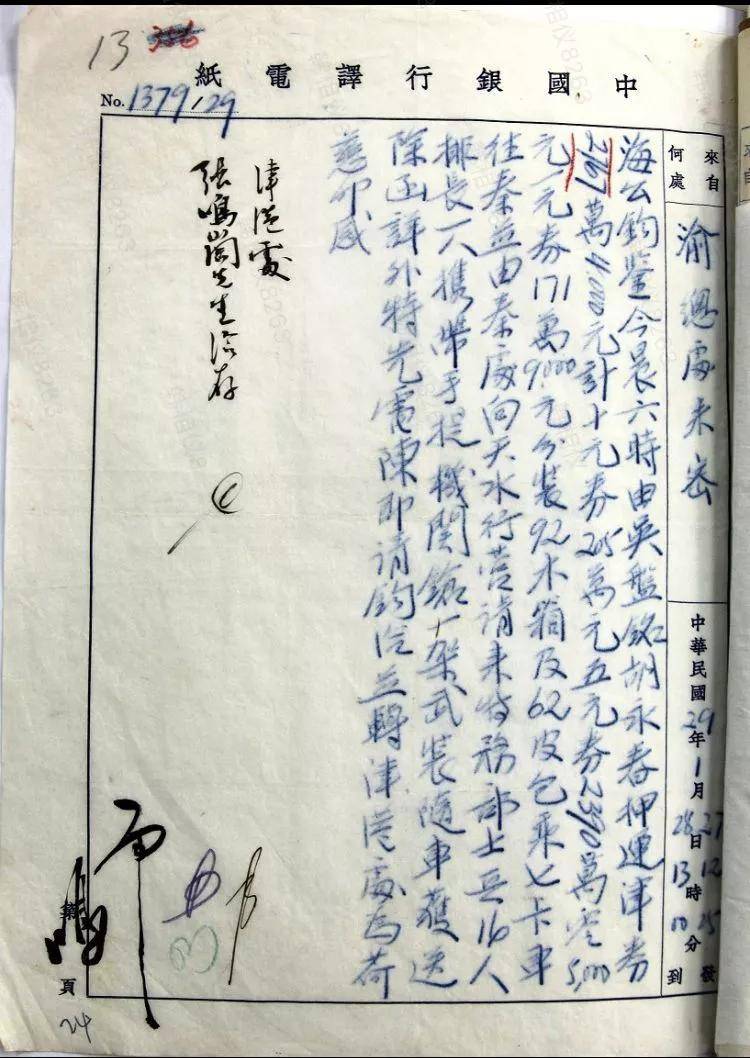 13
中國銀行譯電紙
No. 1379/29
來自何處
渝總處未密
中華民國29年1月
27日12時25分發
28日13時00分到
海公鈞鑒今晨六時由吳盤銘胡永春押運津券
2767萬4.000元計十元券205萬元五元券2390萬零5,000
元一元券171萬9.000元分裝92木箱及62皮包乘七卡車
往秦並由秦處向天水行營請來特務部士兵16人
排長一人攜帶手提機關鎗一架武裝隨車護送
除函詳外特先電陳即請鈞洽並轉津港處為荷
慈叩感
津港處
張鳴崗先生洽存
第頁
24